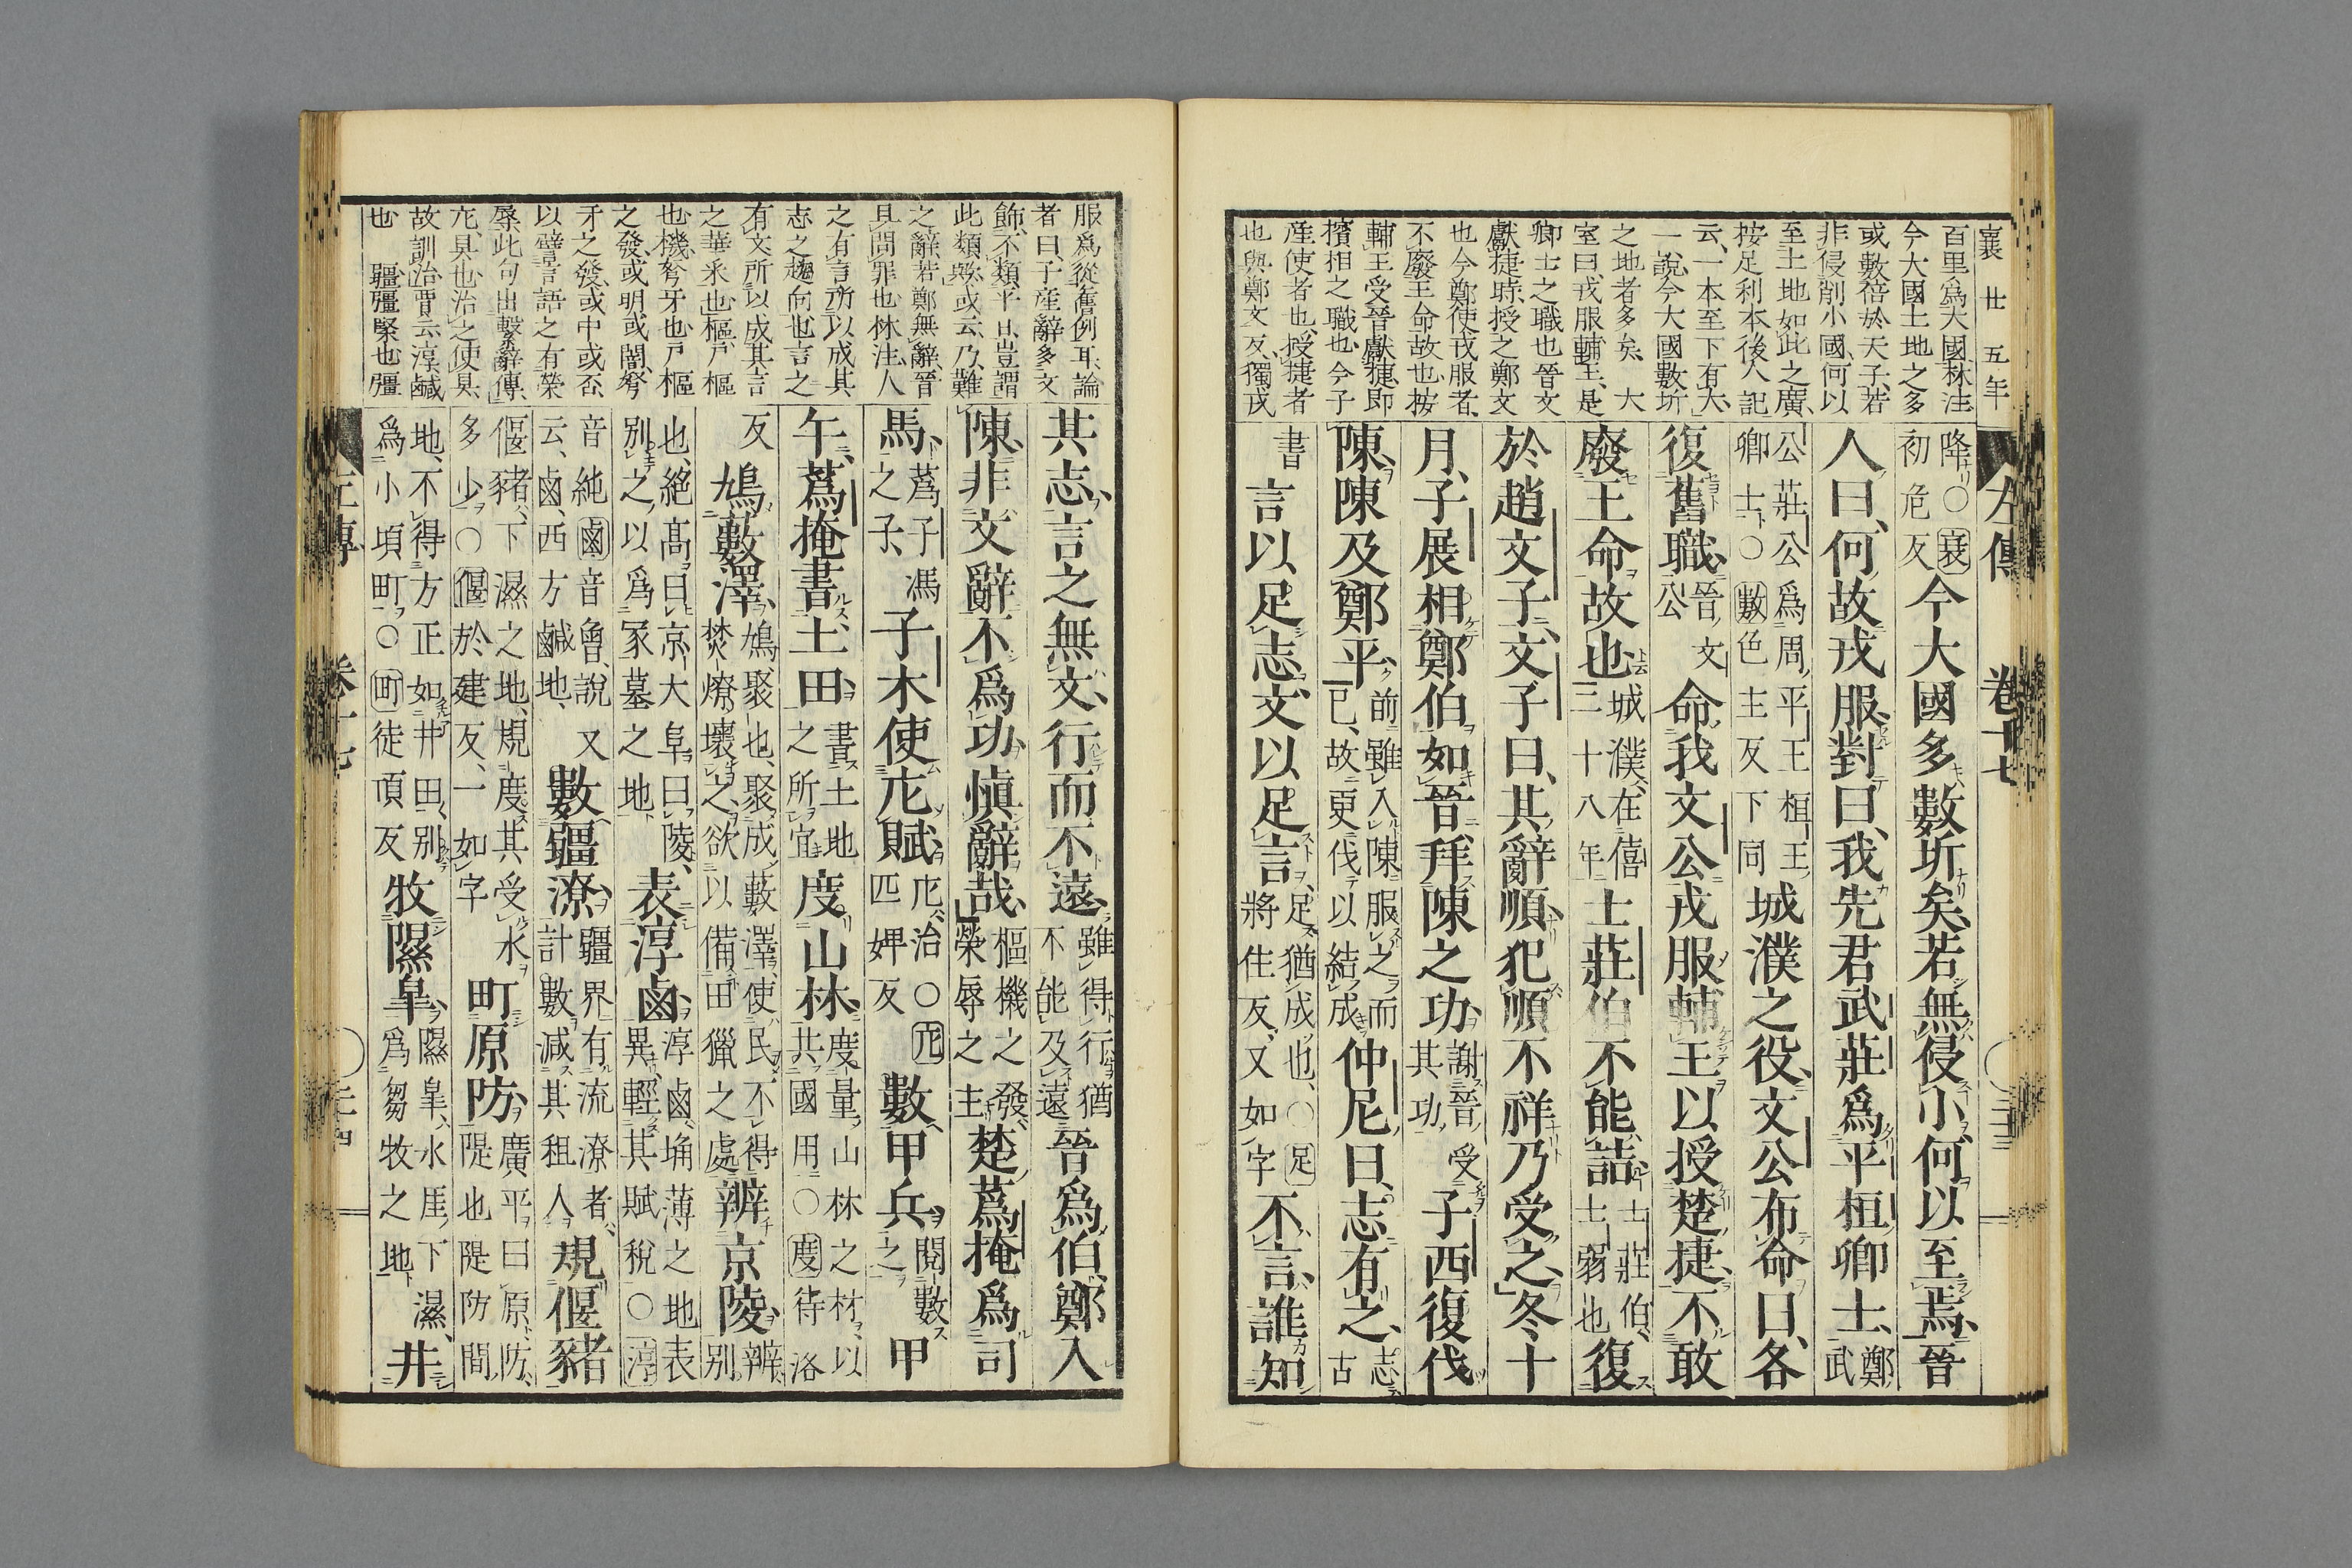 襄廿五年
百里爲大國林注
今大國土地之多
或數倍於天子若
非侵削小國何以
至土地如此之廣
按足利本後人記
云一本至下有大
一説今大國數圻
之地者多矣 大
室曰戎服輔王是
卿士之職也晉文
獻捷時授之鄭文
也今鄭使戎服者
不廢王命故也按
輔王受晉獻捷即
擯相之職也今子
産使者也授捷者
也與鄭文友獨戎
左傳 卷十七
降○衰初危反今大國多數圻矣若無侵小何以至焉晉
人曰何故戎服對曰我先君武莊爲平桓卿士鄭武
公莊公爲周平王桓王卿士○數色主反下同城濮之役文公布命曰各
復舊職晉文公命我文公戎服輔王以授楚捷不敢
廢王命故也城濮在僖二十八年士莊伯不能詰士莊伯士弱也復
於趙文子文子曰其辭順犯順不祥乃受之冬十
月子展相鄭伯如晉拜陳之功謝晉受其功子西復伐
陳陳及鄭平前雖入陳服之而已故更伐以結成仲尼曰志有之志古
書言以足志文以足言足猶成也○足將住反又如字不言誰知
服爲從舊例耳論
者曰子産辭多文
飾不類平日豈謂
此類歟或云乃難
之辭若鄭無辭晉
具問罪也林注人
之有言所以成其
志之趨向也言之
有文所以成其言
之華采也樞戸樞
也機弩牙也戸樞
之發或明或闇弩
牙之發或中或否
以譬言語之有榮
辱此句出繋辭傳
庀具也治之使具
故訓治賈云淳鹹
也 疆彊堅也彊
其志言之無文行而不遠雖得行猶不能及遠晉爲伯鄭入
陳非文辭不爲功愼辭哉樞機之發榮辱之主楚蔿掩爲司
馬蔿子馮之子子木使庀賦庀治○庀匹婢反數甲兵閲數之甲
午蔿掩書土田書土地之所宜度山林度量山林之材以共國用○度待洛
反鳩藪澤鳩聚也聚成藪澤使民不得焚燎壞之欲以備田獵之處辨京陵辨別
也絶高曰京大阜曰陵別之以爲冢墓之地表淳鹵淳鹵埆薄之地表異輕其賦税○淳
音純鹵音魯説又云鹵西方鹹地數疆潦疆界有流潦者計數減其租入規偃豬
偃豬下濕之地規度其受水多少○偃於建反一如字町原防廣平曰原防隄也隄防間
地不得方正如井田別爲小頃町○町徒頂反牧隰皐隰皐水厓下濕爲芻牧之地井
左傳 卷十七 三十四